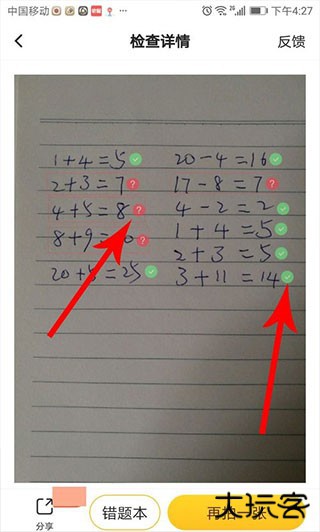 中国移动 下午4:27
检查详情 反馈
1+4=5 20-4=16
2+3=7 17-8=7
4+5=8 4-2=2
8+9= 1+4=5
20+5=25 2+3=5
3+11=14
分享 错题本 再拍一张
大玩客